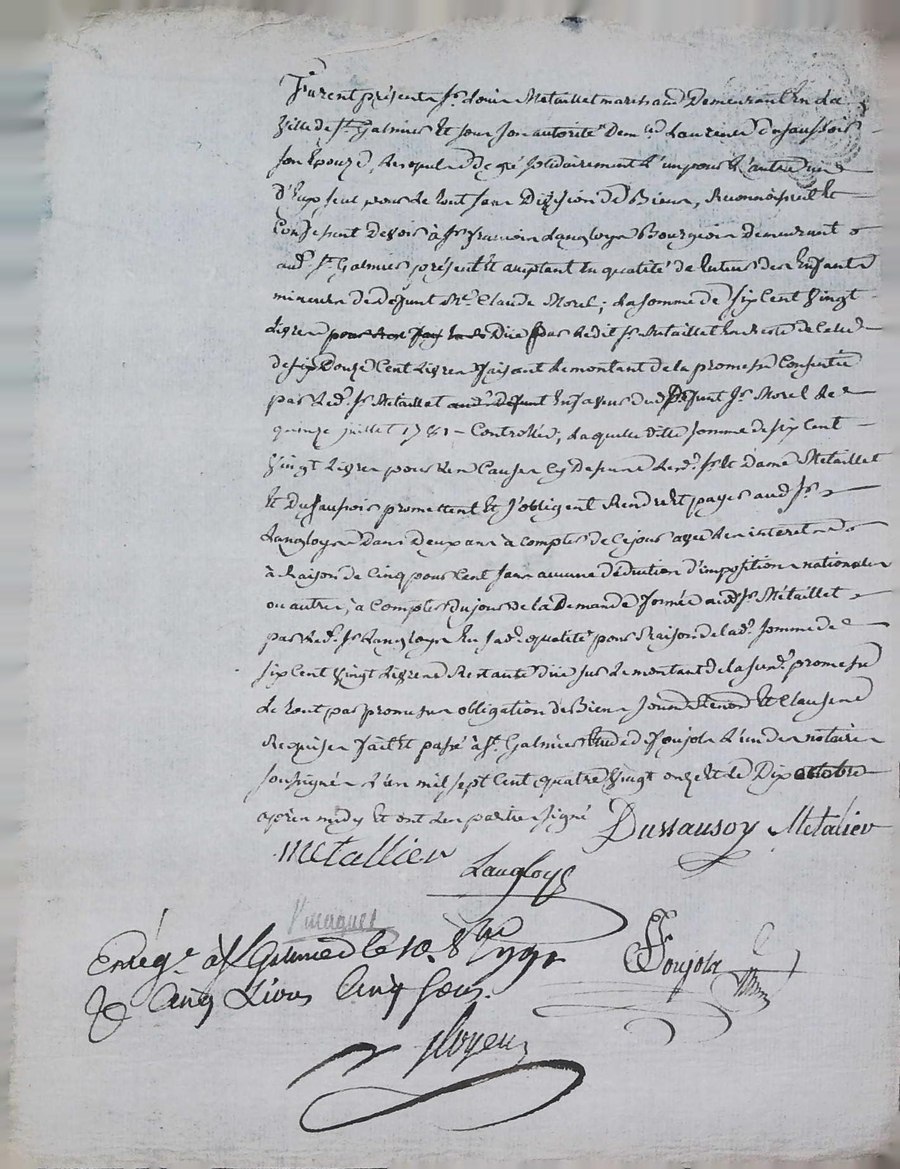 Furent présents Sr. Louis Metaillet marchand Demeurant En La
Ville de St. Galmier Et sous son autorité Dem.lle Laurence Dussausois
son Epouze, Lesquels De gré solidairement L'un pour L'autre un
D'Eux seul pour Le tout sans Division De Biens, Reconnoissent Et
Confessent Devoir à Sr. francois Langloys Bourgeois Demeurant
aud. St. Galmier, présent Et acceptant En qualité de tuteur des Enfants
mineurs de defunt Me. Claude Morel; La somme de six Cent Vingt
Livres Düe par Ledit Sr. Metaillet En Reste de Celle
de six Douze Cent Livres faisant Le montant de la promesse Consentie
par Led. Sr. Metaillet Enfaveur dud. Defunt Sr. Morel Le
quinze juillet 1781 - Controllée, Laquelle ditte somme de six Cent
Vingt Livres pour Les Causes Cy Dessus Led. Sr. Et Dame Metaillet
Et Dussausois promettent Et s'obligent Rendre Et payer aud. Sr.
Langloys Dans Deux ans à Compter de Ce jour avec Les interets
à Raison de Cinq pour Cent sans aucune déduction d'imposition nationales
ou autres, à Compter du jour de la Demande formée aud. Sr. Métaillet
par Led. Sr. Langloys En sad. qualité pour Raison de lad. somme de
six Cent Vingt Livres Restante düe sur Le montant de la susd. promesse
Le tout par promesses obligation de Biens Et Clauses
Requises fait Et passé à St. Galmier Etude de foujols L'un des notaires
soussignés L'an mil sept Cent quatre Vingt onze Et Le Dix octobre
après midy Et ont Les parties signé Dussausoy Metalier
Metallier
Langloys
Enreg. à St Galmier le 10. 8bre 1791
Cinq Livres Cinq Sous.
foujols